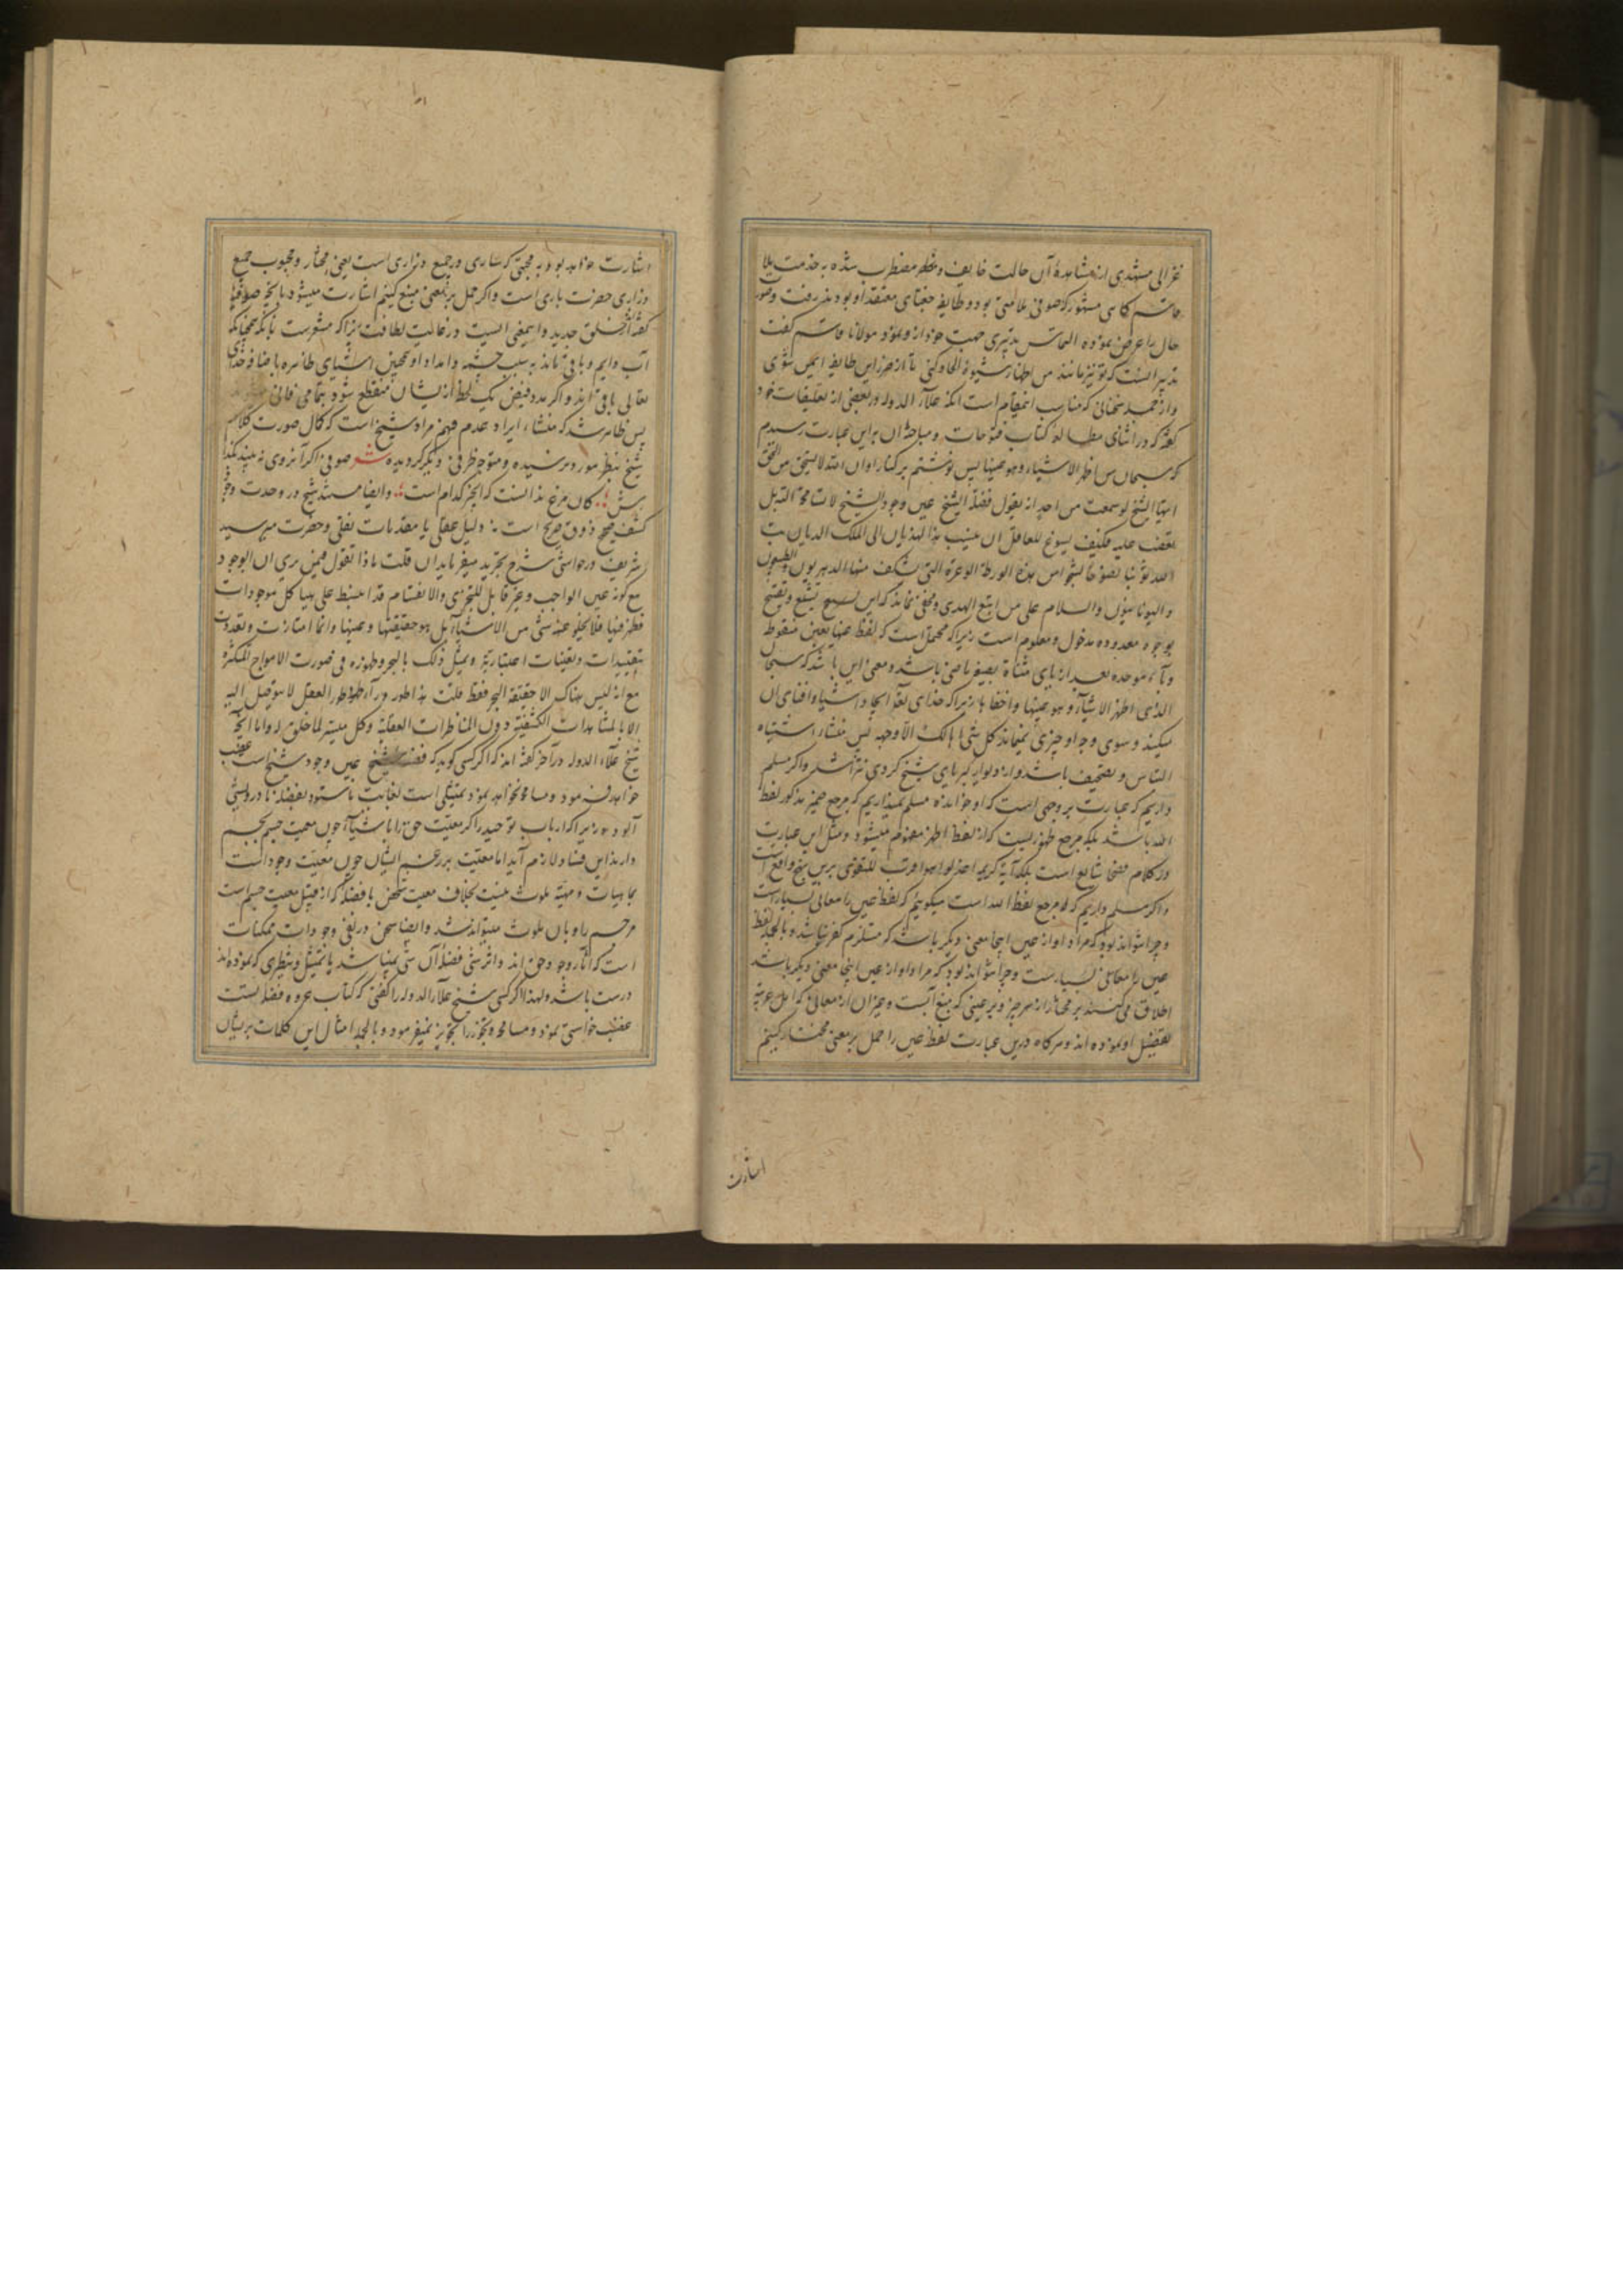 غزالی مشهدی از مشاهدهٔ آن حالت خایف و مضطرب شده به خدمت ملا
قاسم کاهی مشهور که صوفی ملامتی بود و طایفه جغتای معتقد او بودند رفت و صورت
حال را عرض نموده التماس تدبیری جهت خود ازو نمود مولانا قاسم گفت
تدبیر آنست که تو نیز مانند من اظهار شیوهٔ الحاد کنی تا از ضرر این طایفه ایمن شوی
و از جمله سخنانی که مناسب اینمقام است آنکه علاء الدوله در بعضی از تعلیقات خود
گفته که در اثنای مطالعهٔ کتاب فتوحات و مباحثه آن براین عبارت رسیدم
که سبحان من اظهر الاشیاء و هو عینها پس نوشتم بر کنار او ان الله لا یستحیی من الحق
ایها الشیخ لو سمعت من احد انه یقول فضلة الشیخ عین وجود الشیخ لا تسامحه البته بل
تغضب علیه فکیف یسوغ للعاقل ان ینسب هذا الهذیان الی الملک الدیان تب
الی الله توبة نصوحا لتنجو من هذه الورطة الوعرة التی یستنکف منها الدهریون الطبیعیون
و الیونانیون والسلام علی من اتبع الهدی و مخفی نماند که این تشنیع و تقبیح
بوجوه معدوده مدخول و معلوم است زیرا که محتمل است که لفظ عینها بغین منقوطه
و باء موحده بعد از یای مثناة بصیغه ماضی باشد و معنی این باشد که سبحان
الذی اظهر الاشیاء و هو غیبها و اخفاها زیرا که خدای تعالی ایجاد اشیا و افنای آن
میکند و سوی وجه او چیزی نمیماند کل شیء هالک الا وجهه پس منشأ اشتباه
التباس و تصحیف باشد و از دلوایه کبریای شیخ کردی نتراشد و اگر مسلم
داریم که عبارت بر وجهی است که او خوانده مسلم نمیداریم که مرجع ضمیر مذکور لفظ
الله باشد بلکه مرجع ظهوریست که از لفظ اظهر مفهوم میشود و مثل این عبارت
در کلام فصحا شایع است بلکه آیه کریمه اعدلوا هو اقرب للتقوی برین نهج واقع است
و اگر مسلم داریم که مرجع لفظ الله است میگوییم که لفظ عین را معانی بسیار است
و چرا نتواند بود که مراد او از عین اینجا معنی دیگر باشد که مستلزم کفر نباشد و بالجمله لفظ
عین را معانی بسیارست و چرا نتواند بود که مراد او از عین اینجا معنی دیگر باشد
اطلاق می‌کنند بر مختار از هر چیز و بر عینی که منبع آبست و غیر آن از معانی که اهل عربیه
تفصیل او نموده اند و هرگاه درین عبارت لفظ عین را حمل بر معنی مختار کنیم
اشارت
اشارت خواهد بود به محبتی که ساری در جمیع ذراری است یعنی مختار و محبوب جمیع
ذراری حضرت باری است و اگر حمل بر معنی منبع کنیم اشارت میشود بانچه صوفیه
گفته‌اند خلق جدید و این معنی ایست در غایت لطافت زیرا که مشعرست بآنکه همچنانکه
آب دایم و باقی نماند به سبب چشمه و امداد او همچنین اشیای ظاهره بافاضه خدای
تعالی باقی اند و اگر مدد فیض یک لحظه از ایشان منقطع شود بتمامی فانی
پس ظاهر شد که منشاء ایراد عدم فهم مراد شیخ است که کمال صورت کلام
شیخ بنظر مورد نرسیده و متوجه طرفی دیگر گردیده شعر صوفی اگر آنروی نه بیند بگذار
کان مرغ ندانست که انجیر کدام است و ایضا مستند شیخ در وحدت وجود
کشف صحیح و ذوق صریح است نه دلیل عقلی یا مقدمات نقلی و حضرت میر سید
شریف در حواشی شرح تجرید میفرماید ان قلت ماذا تقول فیمن یری ان الوجود
مع کونه عین الواجب و غیر قابل للتجزی والانقسام قد انبسط علی هیاکل موجودات
فظهر فیها فلا یخلو عنه شی من الاشیاء بل هو حقیقتها و عینها وانما امتازت و تعددت
بتقییدات و تعینات اعتباریة و یمثل ذلک بالبحر و ظهوره فی صورت الامواج المتکثرة
مع انه لیس هناک الا حقیقة البحر فقط قلت هذا طور وراء طور العقل لا یتوصل الیه
الا بالمشاهدات الکشفیة دون المناظرات العقلیه وکل میسر لما خلق له و اما آنچه
شیخ علاء الدوله در آخر گفته اند که اگر کسی گوید که فضله شیخ عین وجود شیخ است غضب
خواهد فرمود و مسامحه نخواهد نمود تمثیلی است بغایت ناستوده بفضله نادرویشی
آلوده زیرا که ارباب توحید را اگر معیت حق را باشیاء چون معیت جسم بجسم
دارند این فساد لازم آید اما معیت بر زعم ایشان چون معیت وجود است
بماهیات و مهیة ملوث نیست بخلاف معیت شخص با فضله که از قبیل معیت جسم است
مر جسم را و بان ملوث میتواند شد و ایضا سخن در نفی وجودات ممکنات
است که آثار وجود حق اند و اثر شی فضلهٔ آن شی نمیباشد پا تمثیل و نظیری که نموده‌اند
درست باشد و لهذا اگر کسی شیخ علاء الدوله را گفتی که کتاب عروه فضلهٔ تست
غضب خواستی نمود و مسامحه و تجوز را تجویز نمیفرمود و بالجمله امثال این کلمات پریشان